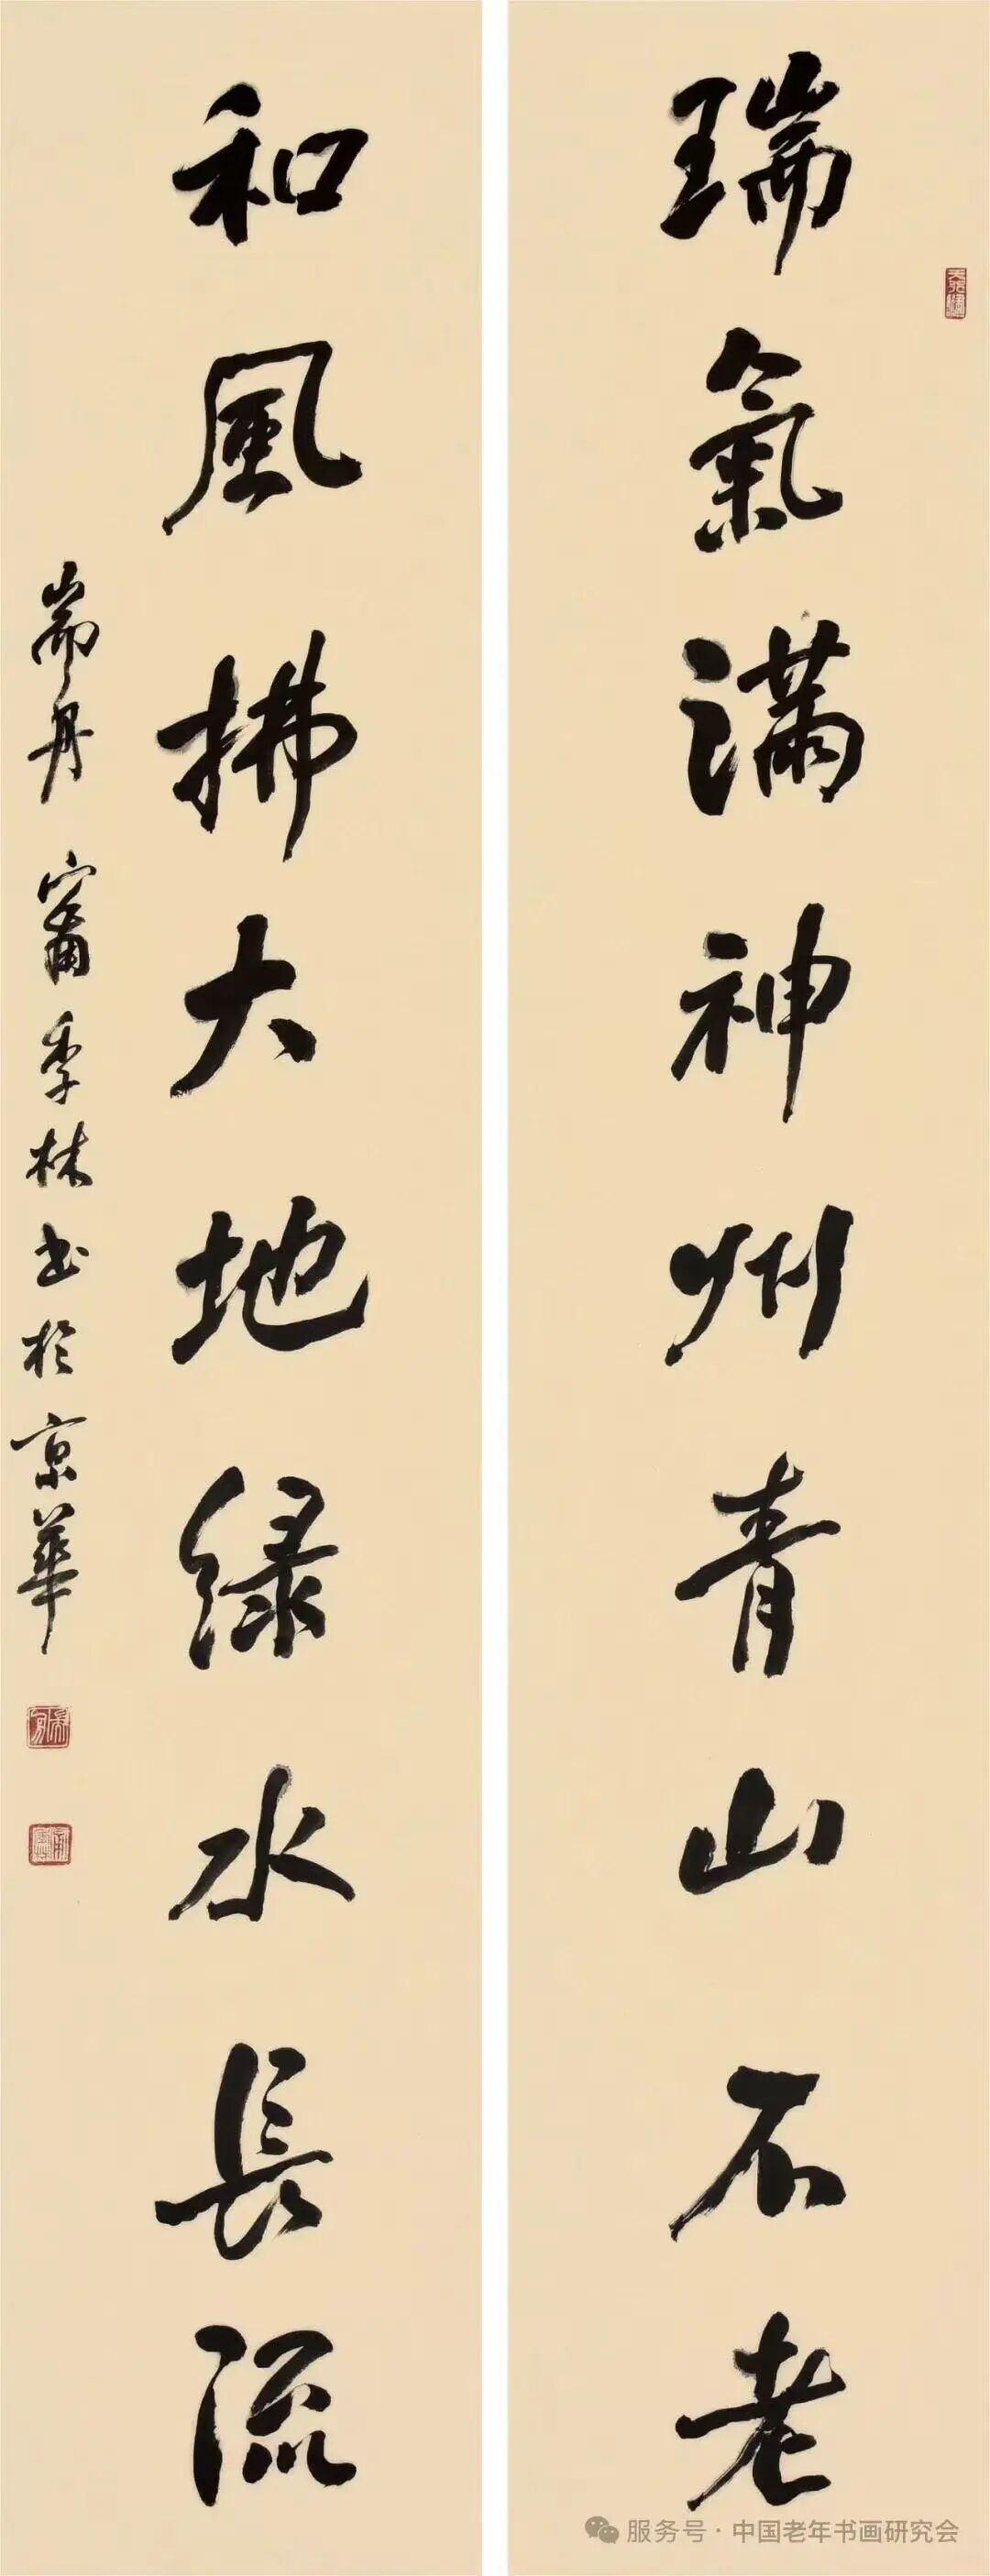 瑞氣满神州青山不老
和風拂大地绿水長流
岁丹 甯季林书於京華
服务号·中国老年书画研究会